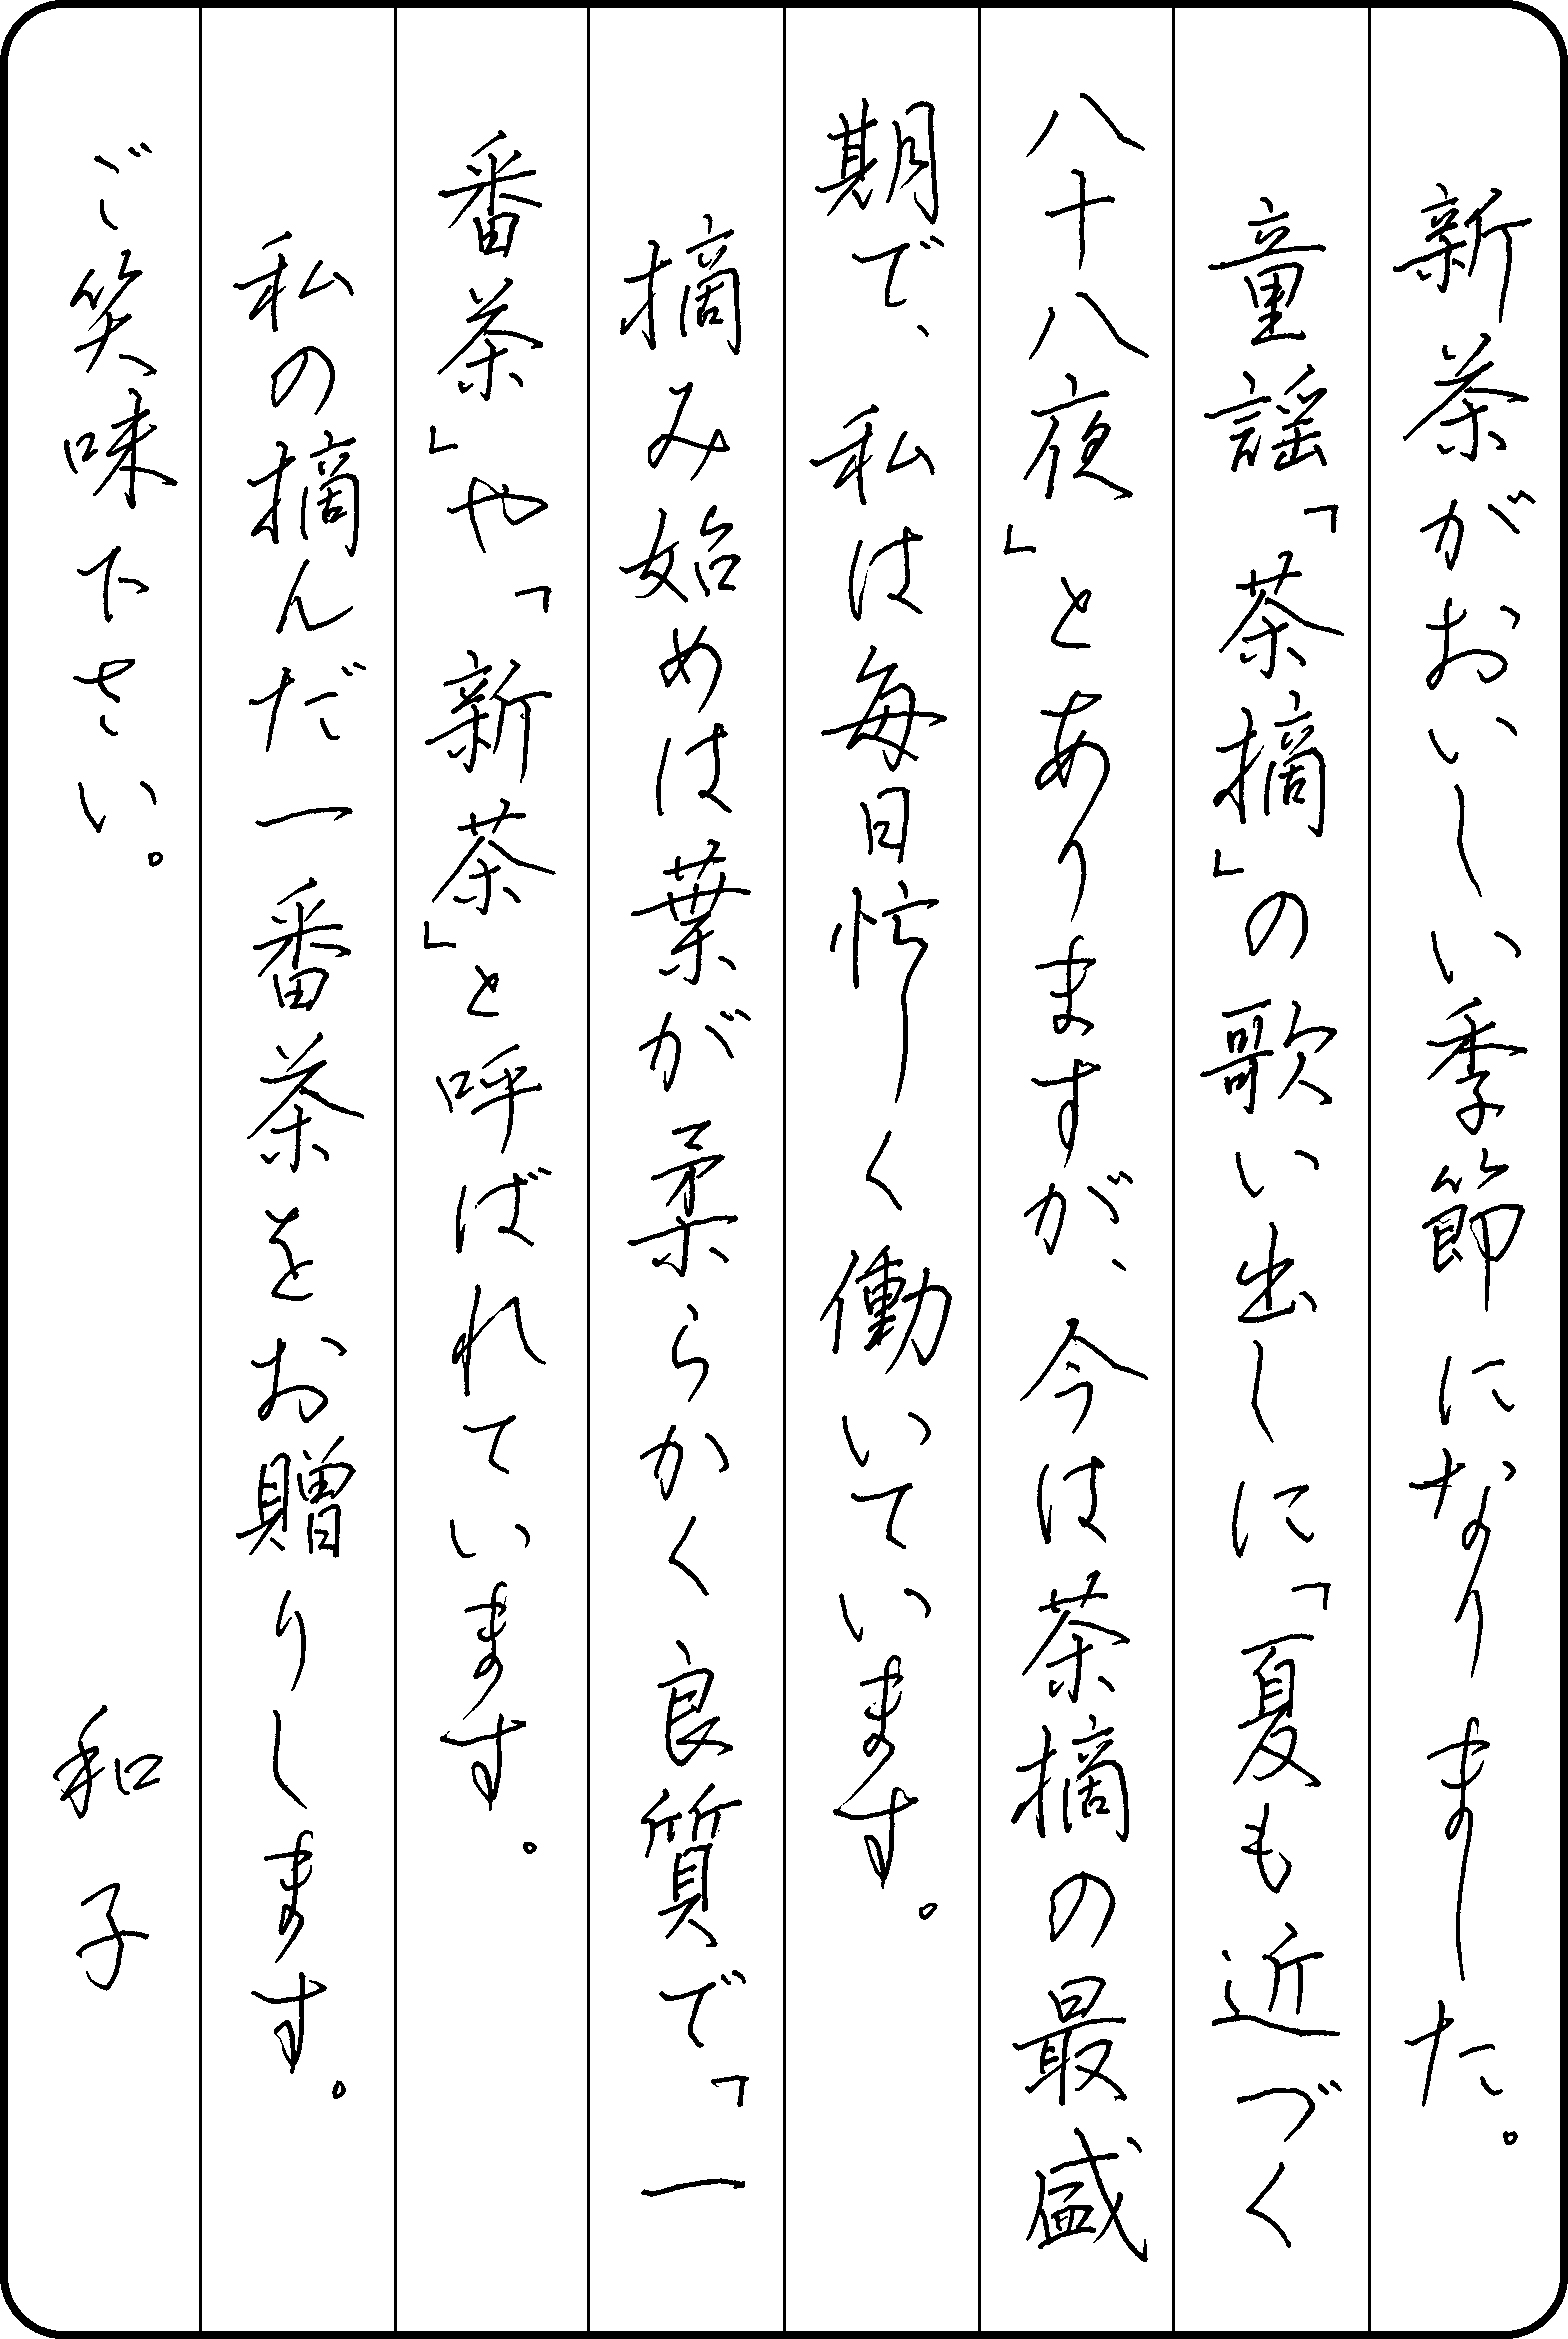 新茶がおいしい季節になりました。
童謡「茶摘」の歌い出しに「夏も近づく
八十八夜」とありますが、今は茶摘の最盛
期で、私は毎日忙しく働いています。
摘み始めは葉が柔らかく良質で「一
番茶」や「新茶」と呼ばれています。
私の摘んだ一番茶をお贈りします。
ご笑味下さい。 和子